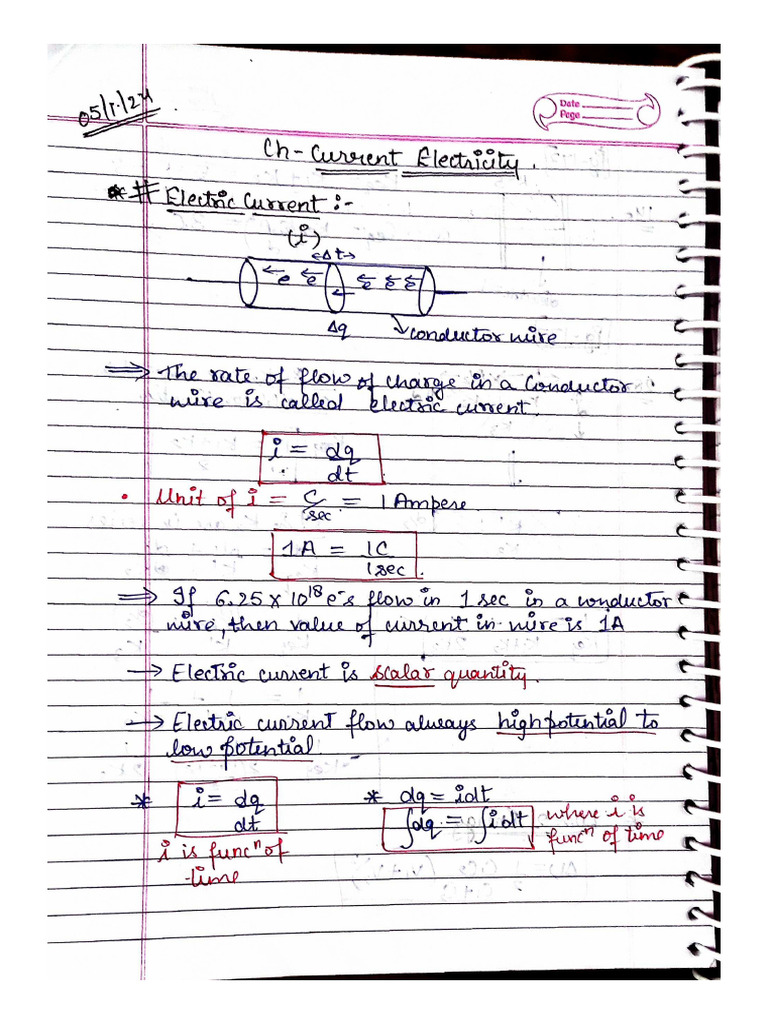 05/1/24
Date
Page
Ch- Current Electricity.
*# Electric Current :-
(i)
<Δt>
e e e e e
Δq conductor wire
⇒ The rate of flow of charge in a Conductor
wire is called electric current.
i = dq/dt
• Unit of i = C/sec = 1 Ampere
1A = 1C/1sec.
⇒ If 6.25 × 10¹⁸ e⁻s flow in 1 sec in a conductor
wire, then value of current in wire is 1A
→ Electric current is scalar quantity.
→ Electric current flow always high potential to
low potential.
* i = dq/dt * dq = idt
∫dq = ∫idt where i is
funcⁿ of time
i is funcⁿ of
time